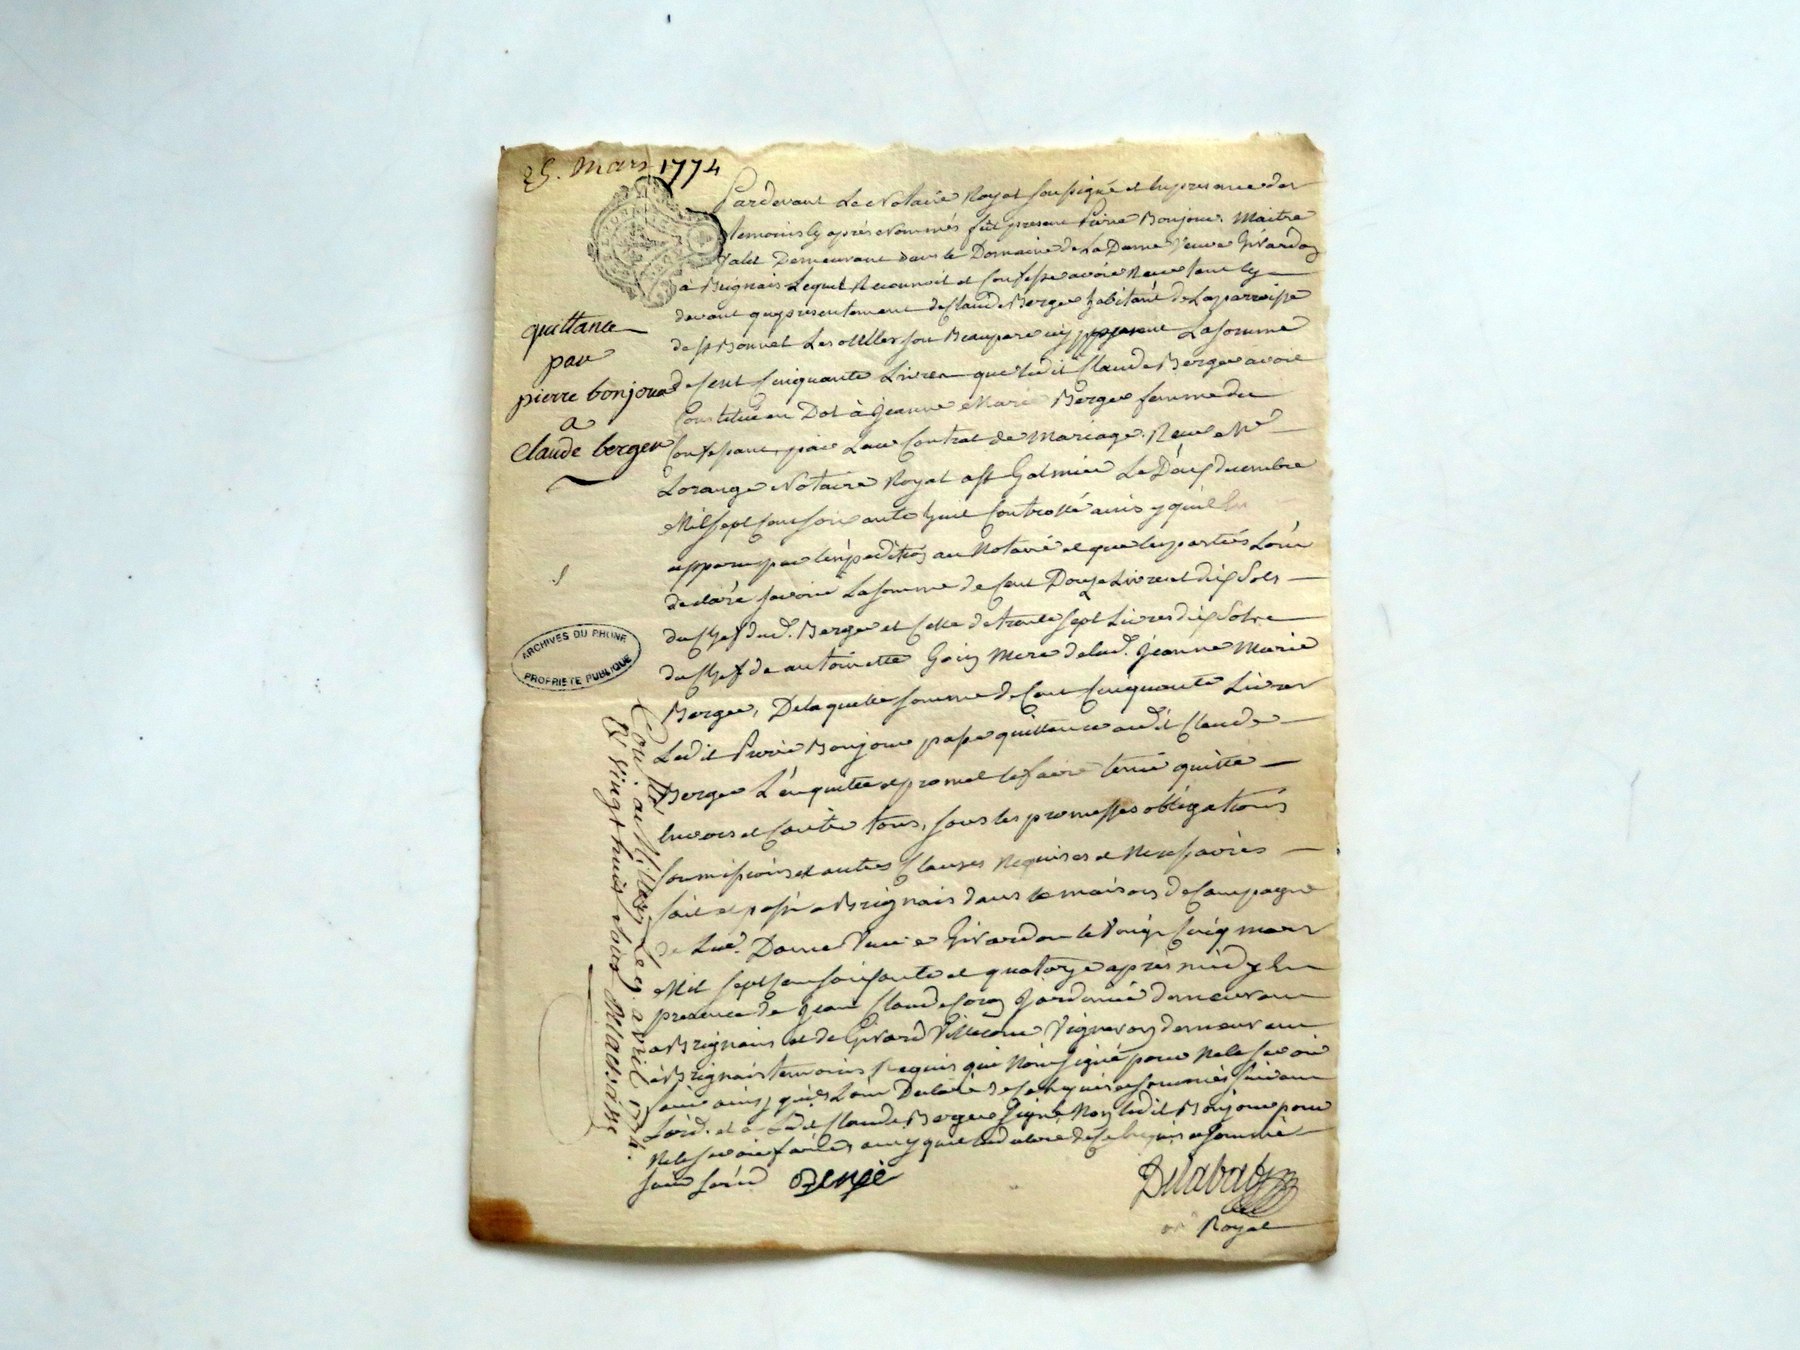 25. Mars 1774
Pardevant Le Notaire Royal soussigné et en presence des
temoins cy après Nommés fût present Pierre Bonjour Maitre
Valet Demeurant dans le Domaine de La Dame Veuve Girardon
à Brignais Lequel Reconnoit et Confesse avoir Receu tant cy
devant que presentement de Claude Berger habitant de La parroisse
de st Bonnet Les oulles son Beaupere icy present La somme
de Cent Cinquante Livres que ledit Claude Berger avoit
Constitué en Dot à Jeanne Marie Berger femme du
Confessant, par Leur Contrat de Mariage Receu Me
Lorange Notaire Royal a st Galmier Le Dix decembre
Mil sept Cent soixante huit Controllé ainsy quil
apparu par lexpedition au Notaire et que les parties L'ont
declaré savoir La somme de Cent Douze Livres et dix Sols
du Chef dud. Berger et Celle de trente sept Livres dix Sols
du Chef de antoinette Goin Mere de lad. Jeanne Marie
Berger, De laquelle somme de Cent Cinquante Livres
Ledit Pierre Bonjour passe quittance audit Claude
Berger L'en quitte et promet le faire tenir quitte
Envers et Contre tous, sous les promesses obligations
soumissions et autres Clauses Requises et Necessaires
fait et passé a Brignais dans la maison de Campagne
de Lad. Dame Veuve Girardon le Vingt Cinq mars
Mil sept Cent soixante et quatorze après midy En
presence de Jean Claude Jardinier demeurant
a Brignais et de Girard Vigneron demeurant
à Brignais temoins Requis qui N'ont signé pour Ne le savoir
faire ainsy qu'ils L'ont Declaré de Ce Enquis et sommés suivant
L'ord. et a Ledit Claude Berger signé Non ledit Bonjour pour
Ne le savoir faire ainsy quil la declaré de Ce Enquis et sommé
suiv. L'ord
quittance
par
pierre bonjour
a
claude berger
ARCHIVES DU RHONE
PROPRIETE PUBLIQUE
Con.llé a Millery Le 9. avril 1774.
R. vingt huit sous
Delabat
Royal